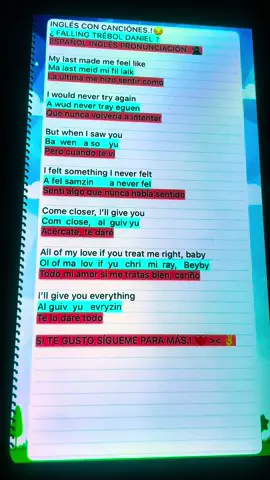 INGLÉS CON CANCIÓNES.! 😏
¿ FALLING TRÉBOL DANIEL ?
ESPAÑOL INGLÉS PRONUNCIACIÓN.
My last made me feel like
Ma last meid mi fil laik
La última me hizo sentir como
I would never try again
A wud never tray eguen
Que nunca volvería a intentar
But when I saw you
Ba wen a so yu
Pero cuando te vi
I felt something I never felt
A fel samzin a never fel
Sentí algo que nunca había sentido
Come closer, I'll give you
Com close, al guiv yu
Acércate, te daré
All of my love if you treat me right, baby
Ol of ma lov if yu chri mi ray, Beyby
Todo mi amor si me tratas bien, cariño
I'll give you everything
Al guiv yu evryzin
Te lo daré todo
SI TE GUSTO SÍGUEME PARA MÁS.! ❤️ >< ✌️